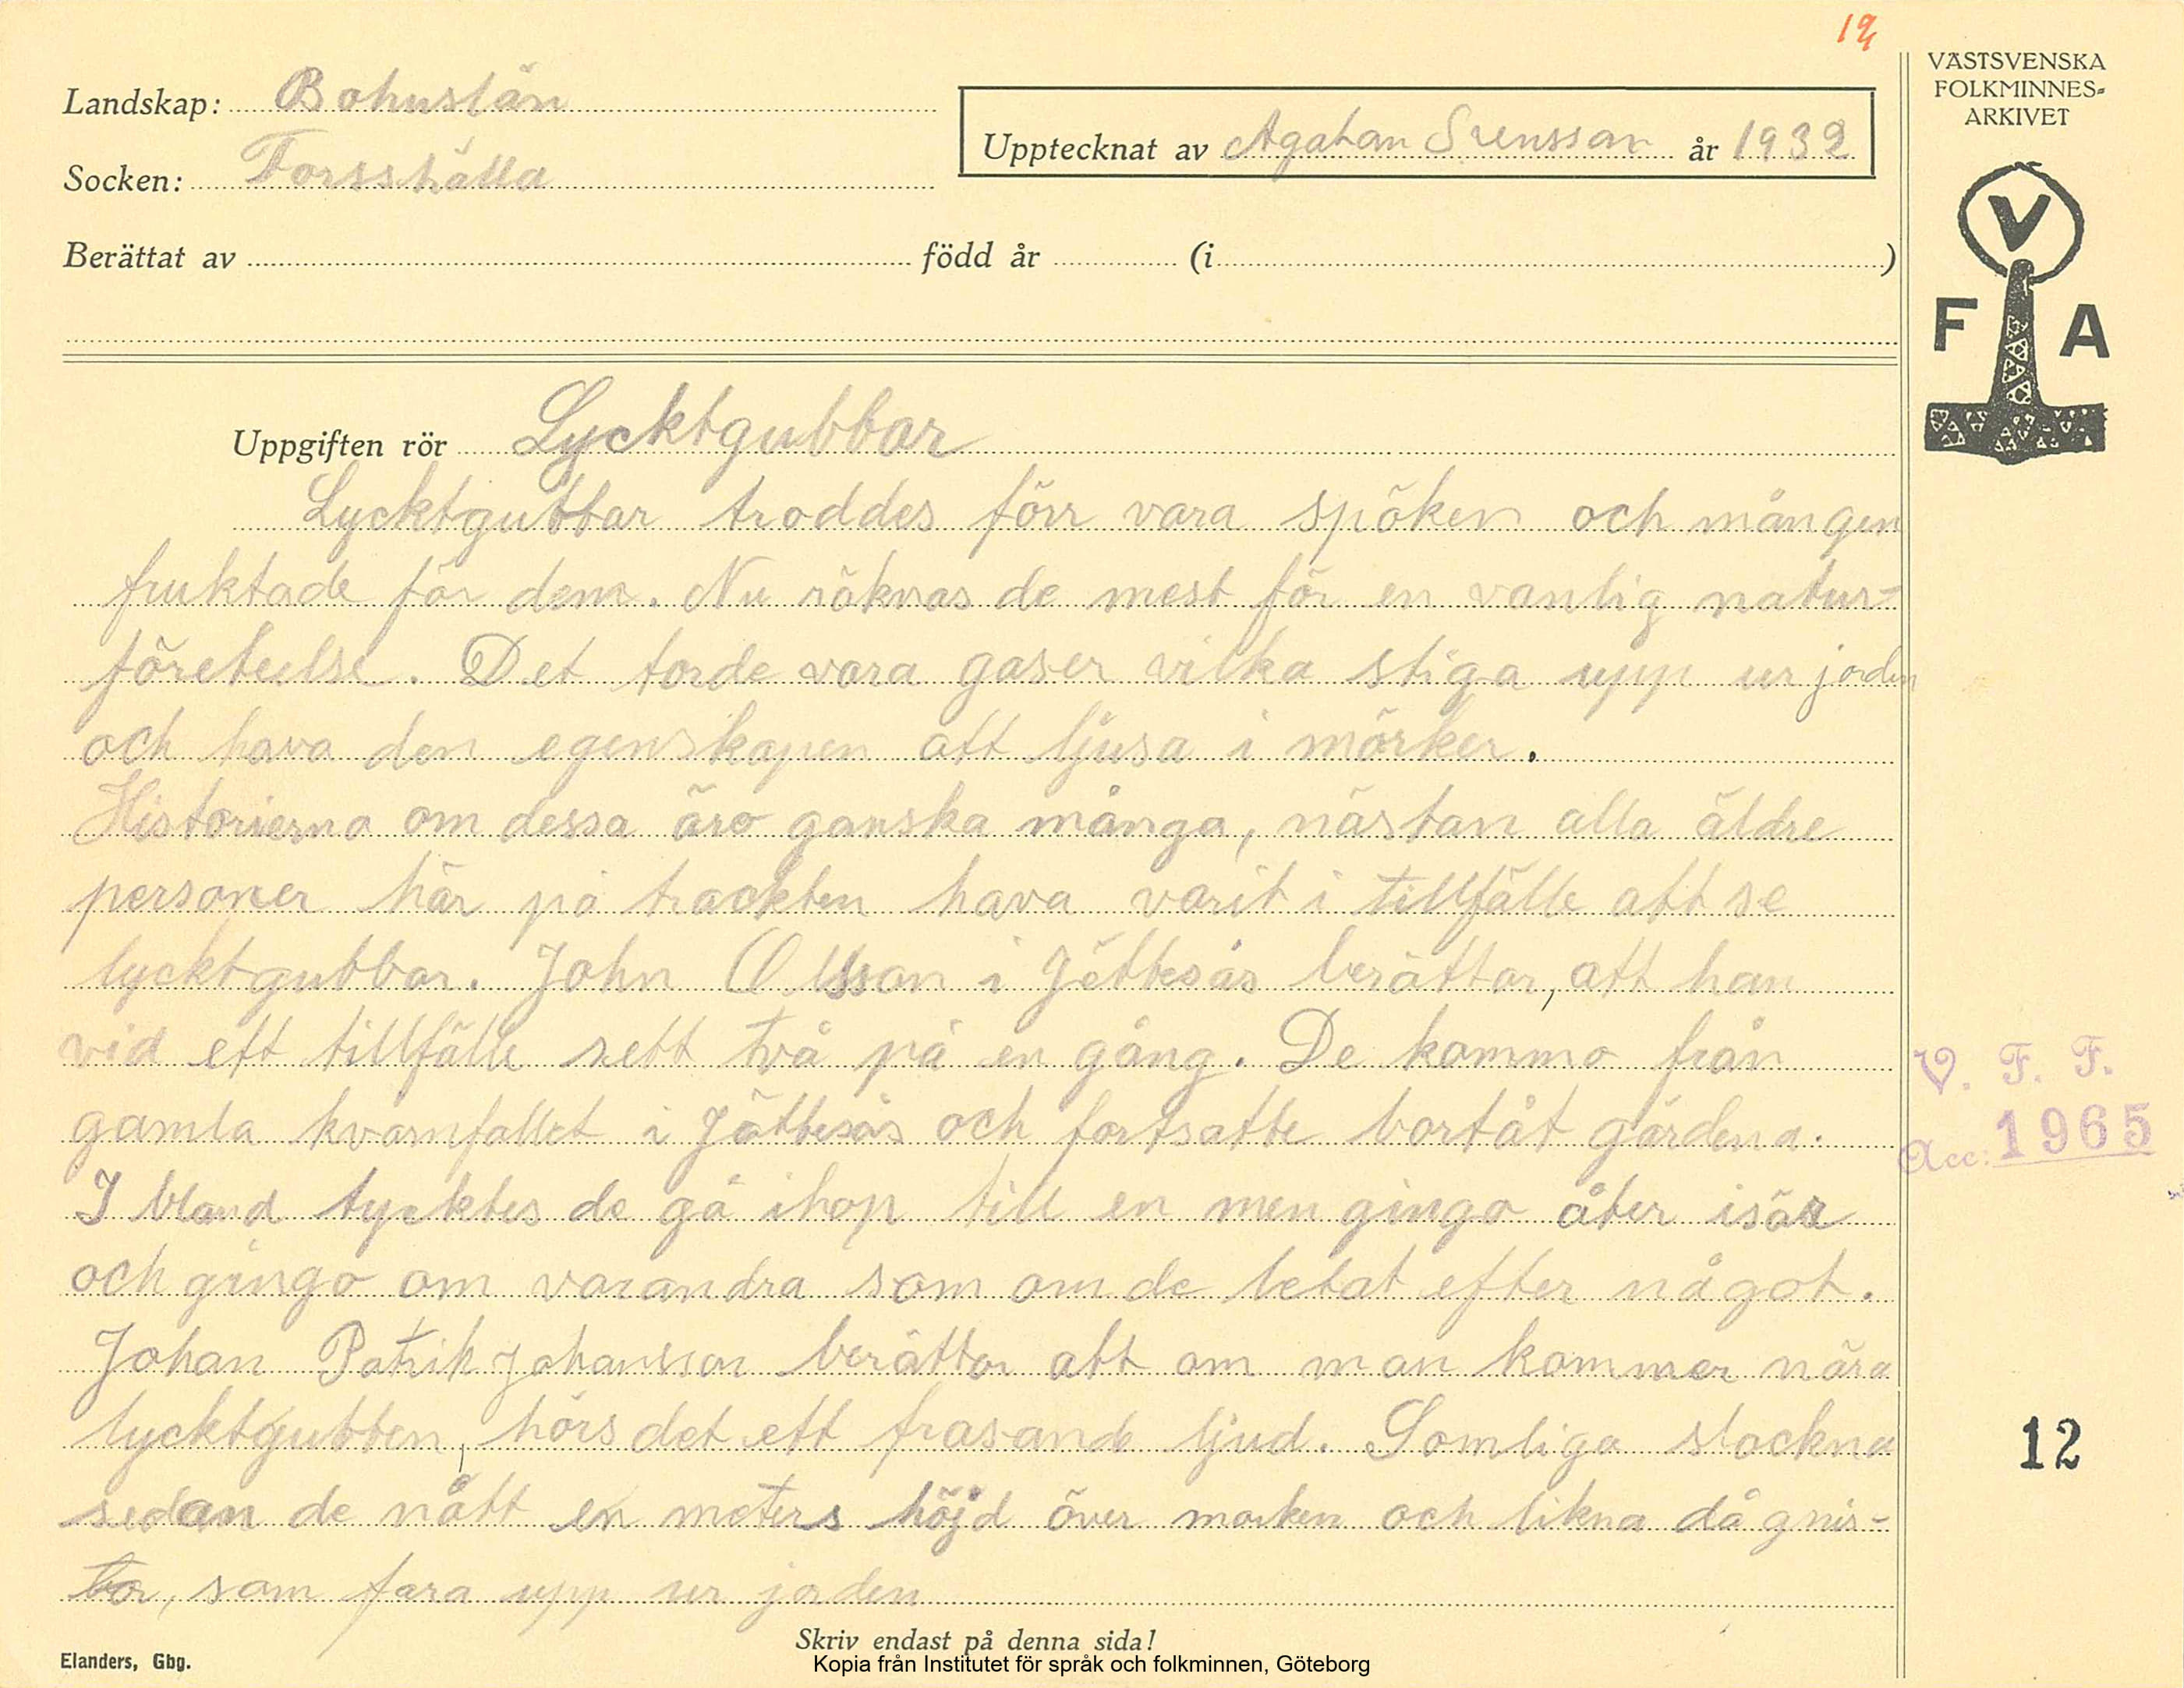 19
Landskap: Bohuslän
Socken: Forsshälla
Upptecknat av Agaton Svensson år 1932
Berättat av född år (i )
VÄSTSVENSKA
FOLKMINNES-
ARKIVET
V
F A
Uppgiften rör Lycktgubbar
Lycktgubbar troddes förr vara spöken och mången
fruktade för dem. Nu räknas de mest för en vanlig natur-
företeelse. Det torde vara gaser vilka stiga upp ur jorden
och hava den egenskapen att ljusa i mörker.
Historierna om dessa äro ganska många, nästan alla äldre
personer här på trackten hava varit i tillfälle att se
lycktgubbar. John Olsson i Jättesås berättar, att han
vid ett tillfälle sett två på en gång. De kommo från
gamla kvarnfallet i Jättesås och fortsatte bortåt gärdena.
I bland tycktes de gå ihop till en men gingo åter isär
och gingo om varandra som om de letat efter något.
Johan Patrik Johansson berättar att om man kommer nära
lycktgubben, hörs det ett frasande ljud. Somliga slockna
sedan de nått en meters höjd över marken och likna då gnis-
tor, som fara upp ur jorden
V. F. F.
Acc: 1965
12
Skriv endast på denna sida!
Elanders, Gbg.
Kopia från Institutet för språk och folkminnen, Göteborg